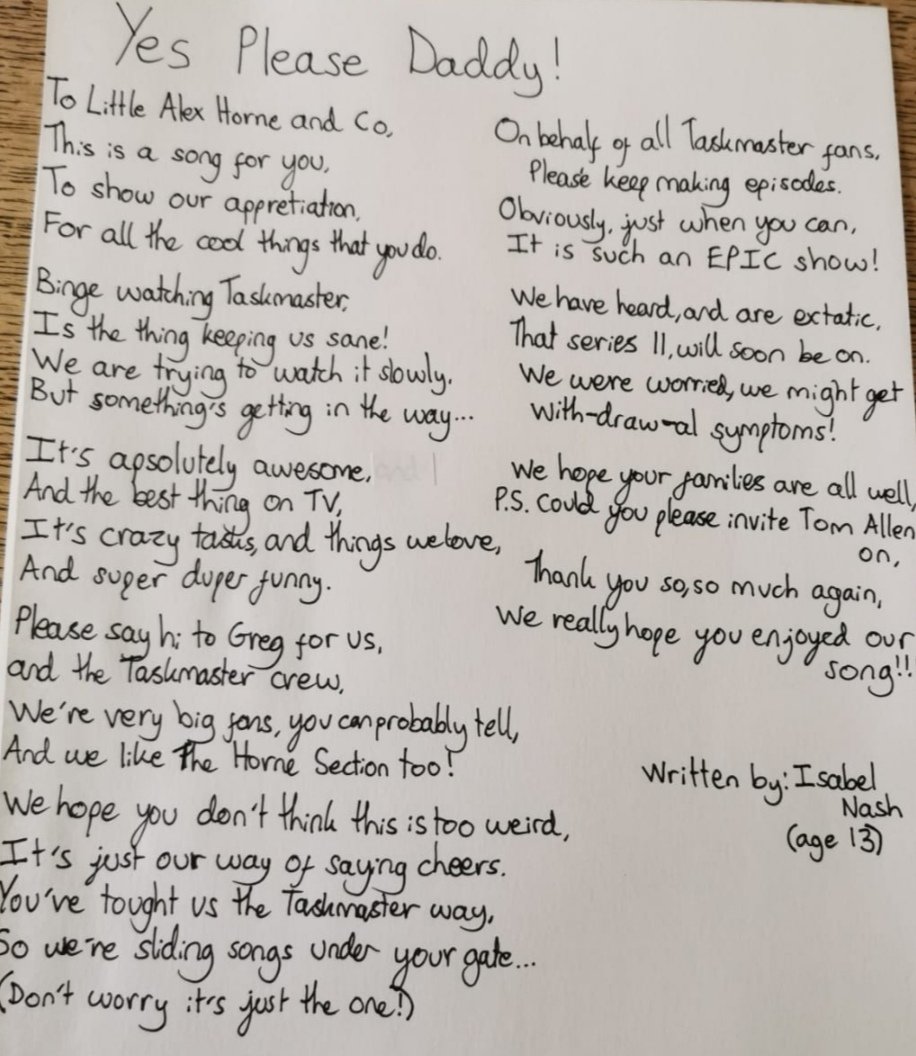 Yes Please Daddy!
To Little Alex Horne and Co,
This is a song for you,
To show our appretiation,
For all the cool things that you do.
Binge watching Taskmaster,
Is the thing keeping us sane!
We are trying to watch it slowly,
But something's getting in the way...
It's apsolutely awesome,
And the best thing on TV,
It's crazy tasks, and things we love,
And super duper funny.
Please say hi to Greg for us,
and the Taskmaster crew,
We're very big fans, you can probably tell,
And we like The Horne Section too!
We hope you don't think this is too weird,
It's just our way of saying cheers.
You've tought us the Taskmaster way,
So we're sliding songs under your gate...
(Don't worry it's just the one!)
On behalf of all Taskmaster fans,
Please keep making episodes.
Obviously, just when you can,
It is such an EPIC show!
We have heard, and are extatic,
That series 11, will soon be on.
We were worried, we might get
With-draw-al symptoms!
We hope your families are all well,
P.S. Could you please invite Tom Allen
on,
Thank you so, so much again,
We really hope you enjoyed our
song!!
Written by: Isabel
Nash
(age 13)